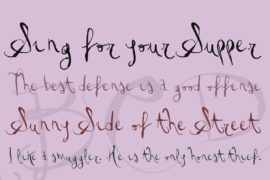 Sing for your Supper
The best defense is a good offense
Sunny Side of the Street
I like a smuggler. He is the only honest thief.